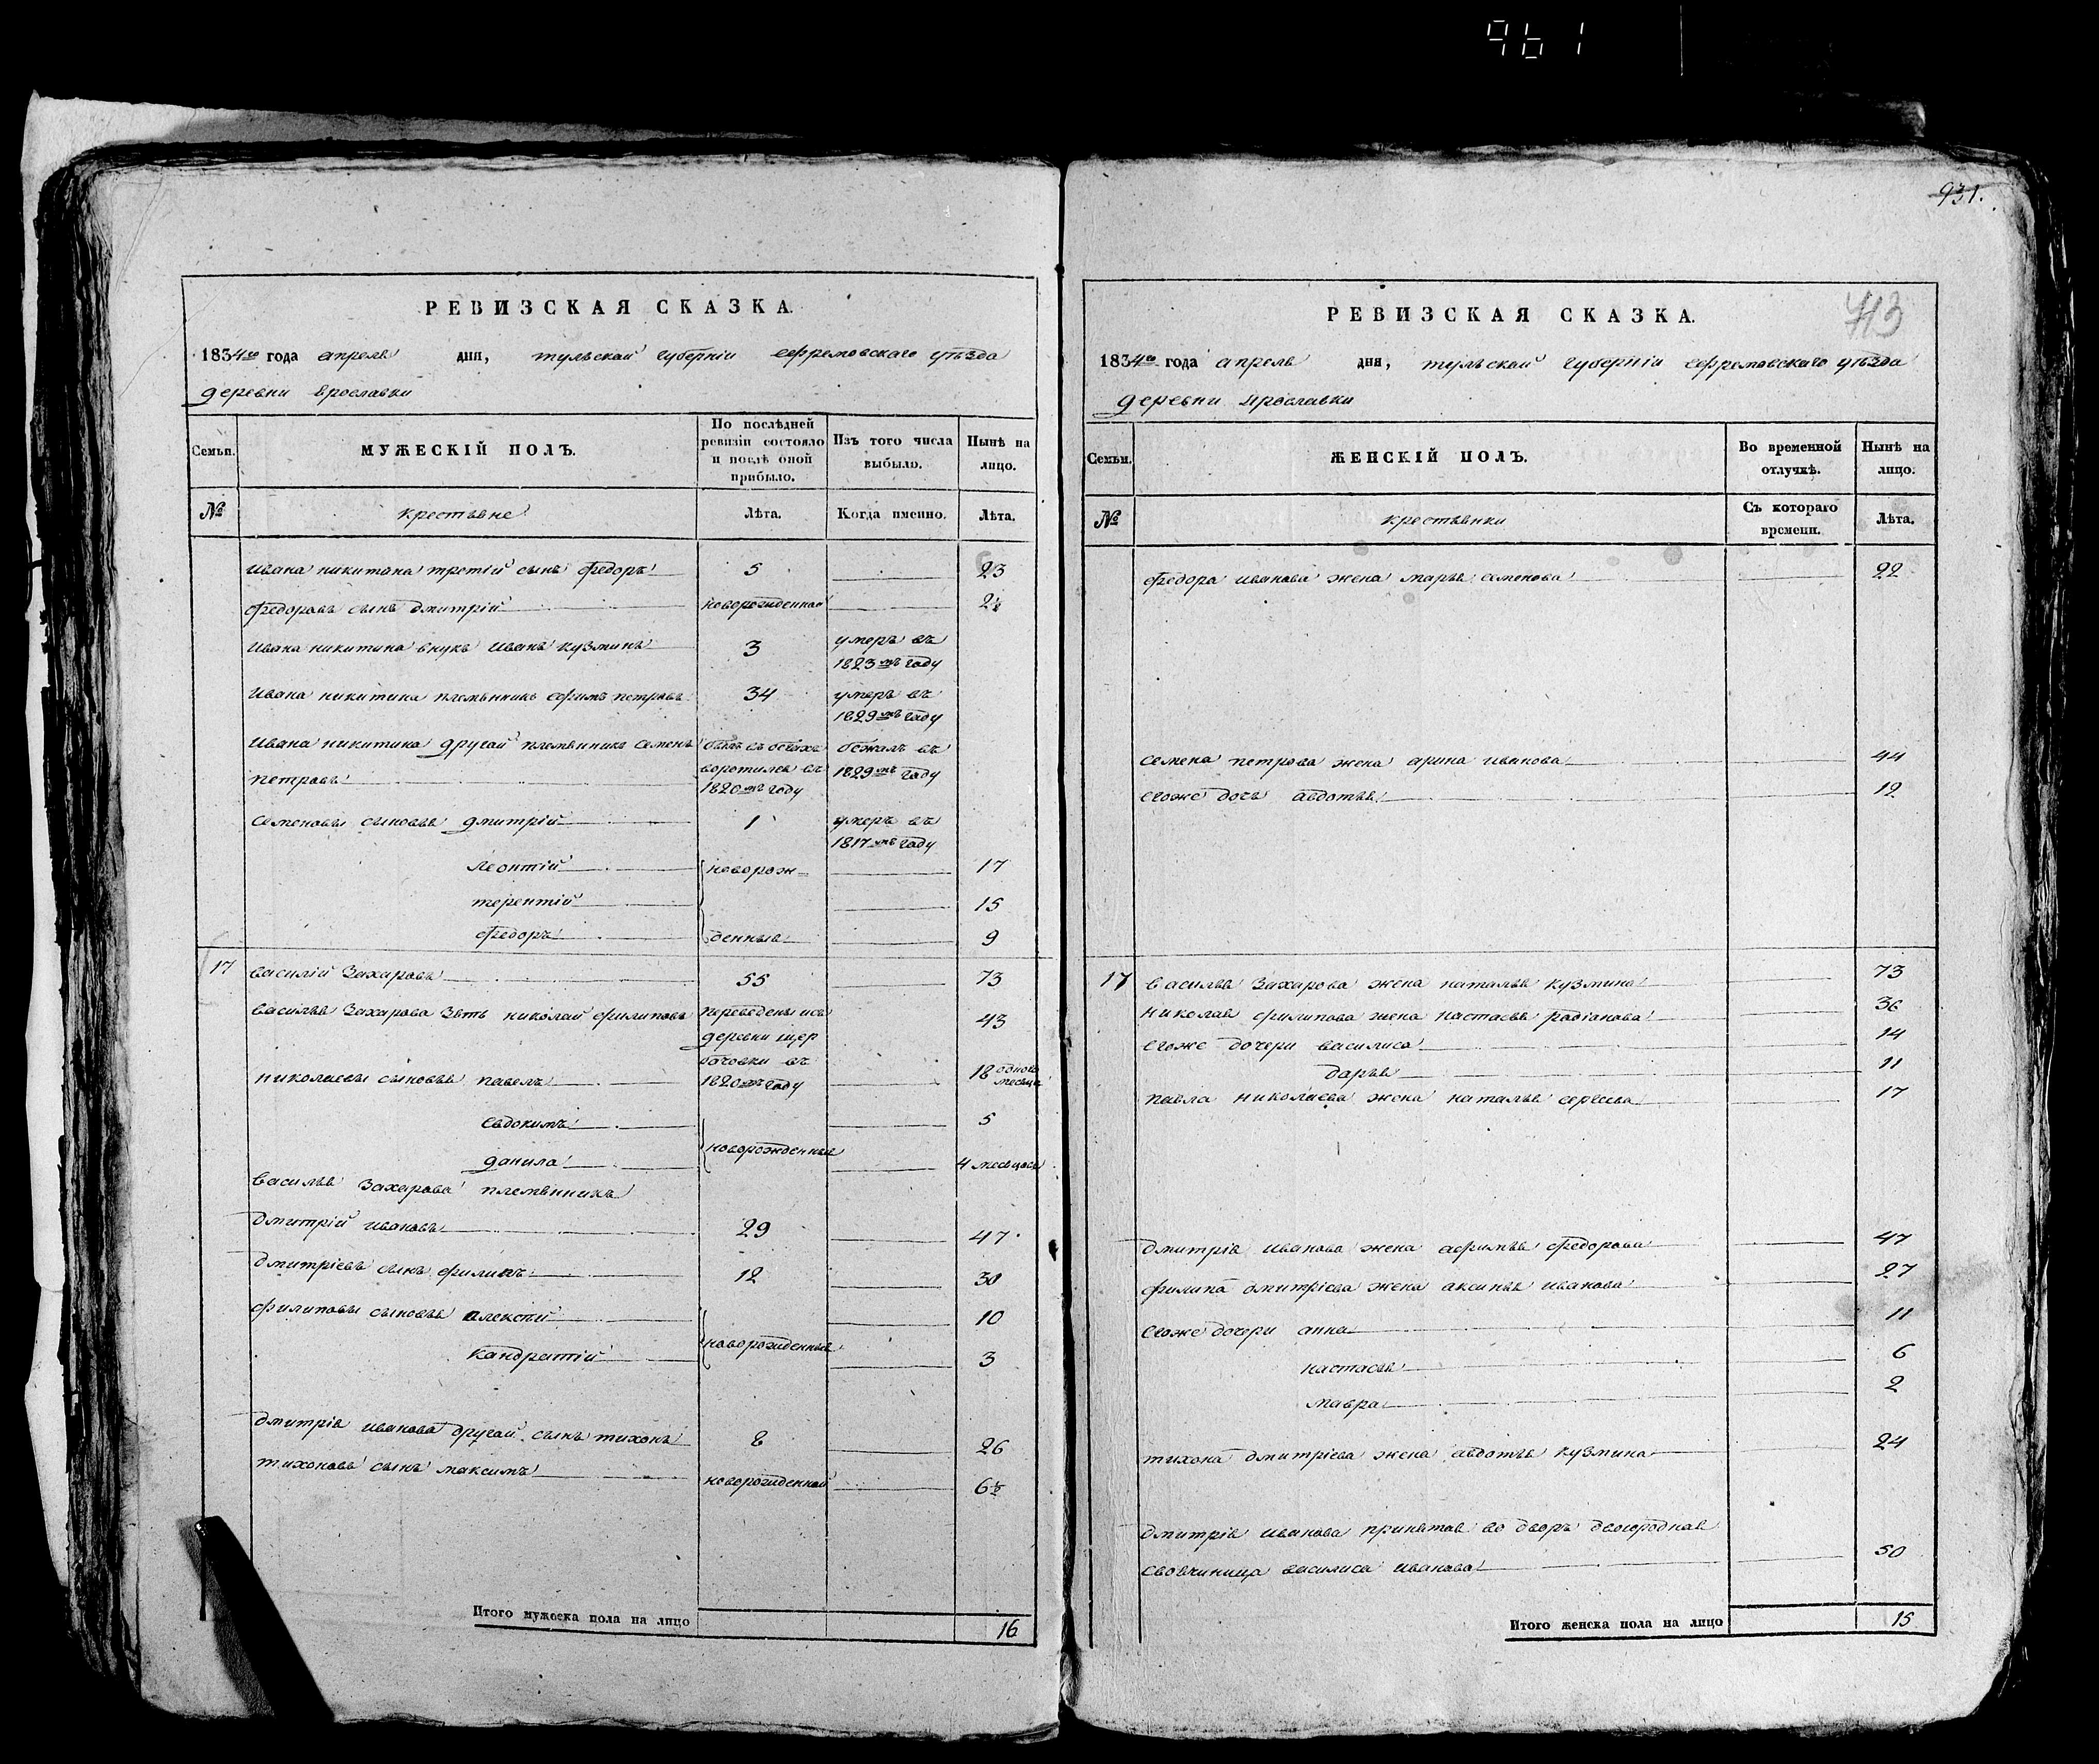 961
931.
713
РЕВИЗСКАЯ СКАЗКА.
1834го года апреля дня, тульской губерніи ефремовскаго уѣзда
деревни Ярославки
Семьи.
МУЖЕСКІЙ ПОЛЪ.
По послѣдней ревизіи состояло и послѣ оной прибыло.
Изъ того числа выбыло.
Нынѣ на лицо.
№ крестьяне Лѣта. Когда именно. Лѣта.
Ивана никитина третій сынъ федоръ 5 23
федоровъ сынъ дмитрій новорожденной 2½
Ивана никитина внукъ Иванъ кузминъ 3 умеръ въ 1823мъ году
Ивана никитина племянникъ ефимъ петровъ 34 умеръ въ 1829мъ году
Ивана никитина другай племянникъ семенъ
петровъ былъ въ бегахъ воротился въ 1820мъ году бежалъ въ 1829мъ году
семеновы сыновья дмитрій 1 умеръ въ 1817мъ году
леонтій новорож= 17
терентій 15
федоръ денныя 9
17 василій Захаровъ 55 73
василья Захарова зять николай филиповъ переведены изъ деревни щербачовки въ 1820мъ году 43
николаевы сыновья павелъ 18 одново месяца
евдокимъ новорожденныя 5
данила 4 месяцовъ
василья Захарова племянникъ
дмитрій ивановъ 29 47
дмитріевъ сынъ филипъ 12 30
филиповы сыновья алексѣй новорожденныя 10
кандратій 3
дмитрія иванова другай сынъ тихонъ 8 26
тихоновъ сынъ максимъ новорожденной 6½
Итого мужеска пола на лицо 16
РЕВИЗСКАЯ СКАЗКА.
1834го года апреля дня, тульской губерніи ефремовскаго уѣзда
деревни Ярославки
Семьи.
ЖЕНСКІЙ ПОЛЪ.
Во временной отлучкѣ.
Нынѣ на лицо.
№ крестьянки Съ котораго времени. Лѣта.
федора иванова жена марья семенова 22
семена петрова жена арина иванова 44
евоже дочь авдотья 12
17 василья Захарова жена наталья кузмина 73
николая филипова жена настасья радіанова 36
евоже дочери василиса 14
дарья 11
павла николаева жена наталья сергеева 17
дмитрія иванова жена афимья федорова 47
филипа дмитріева жена аксинья иванова 27
евоже дочери анна 11
настасья 6
мавра 2
тихона дмитріева жена авдотья кузмина 24
дмитрія иванова принятая во дворъ двоюродная
своячиница василиса иванова 50
Итого женска пола на лицо 15